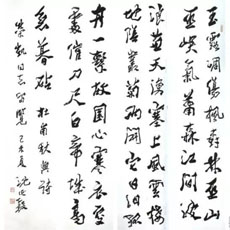 玉露凋傷楓樹林巫山
巫峽氣蕭森江間波
浪兼天湧塞上風雲接
地陰叢菊两開他日淚孤
舟一繫故園心寒衣處
處催刀尺白帝城高
急暮砧 杜甫秋興詩
同志留覽 己未夏 沈延毅